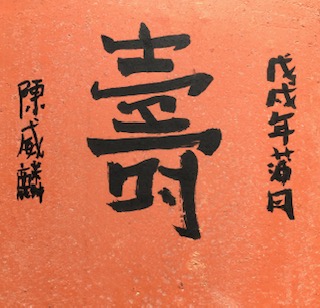 戊戌年蒲月
壽
陳威麟